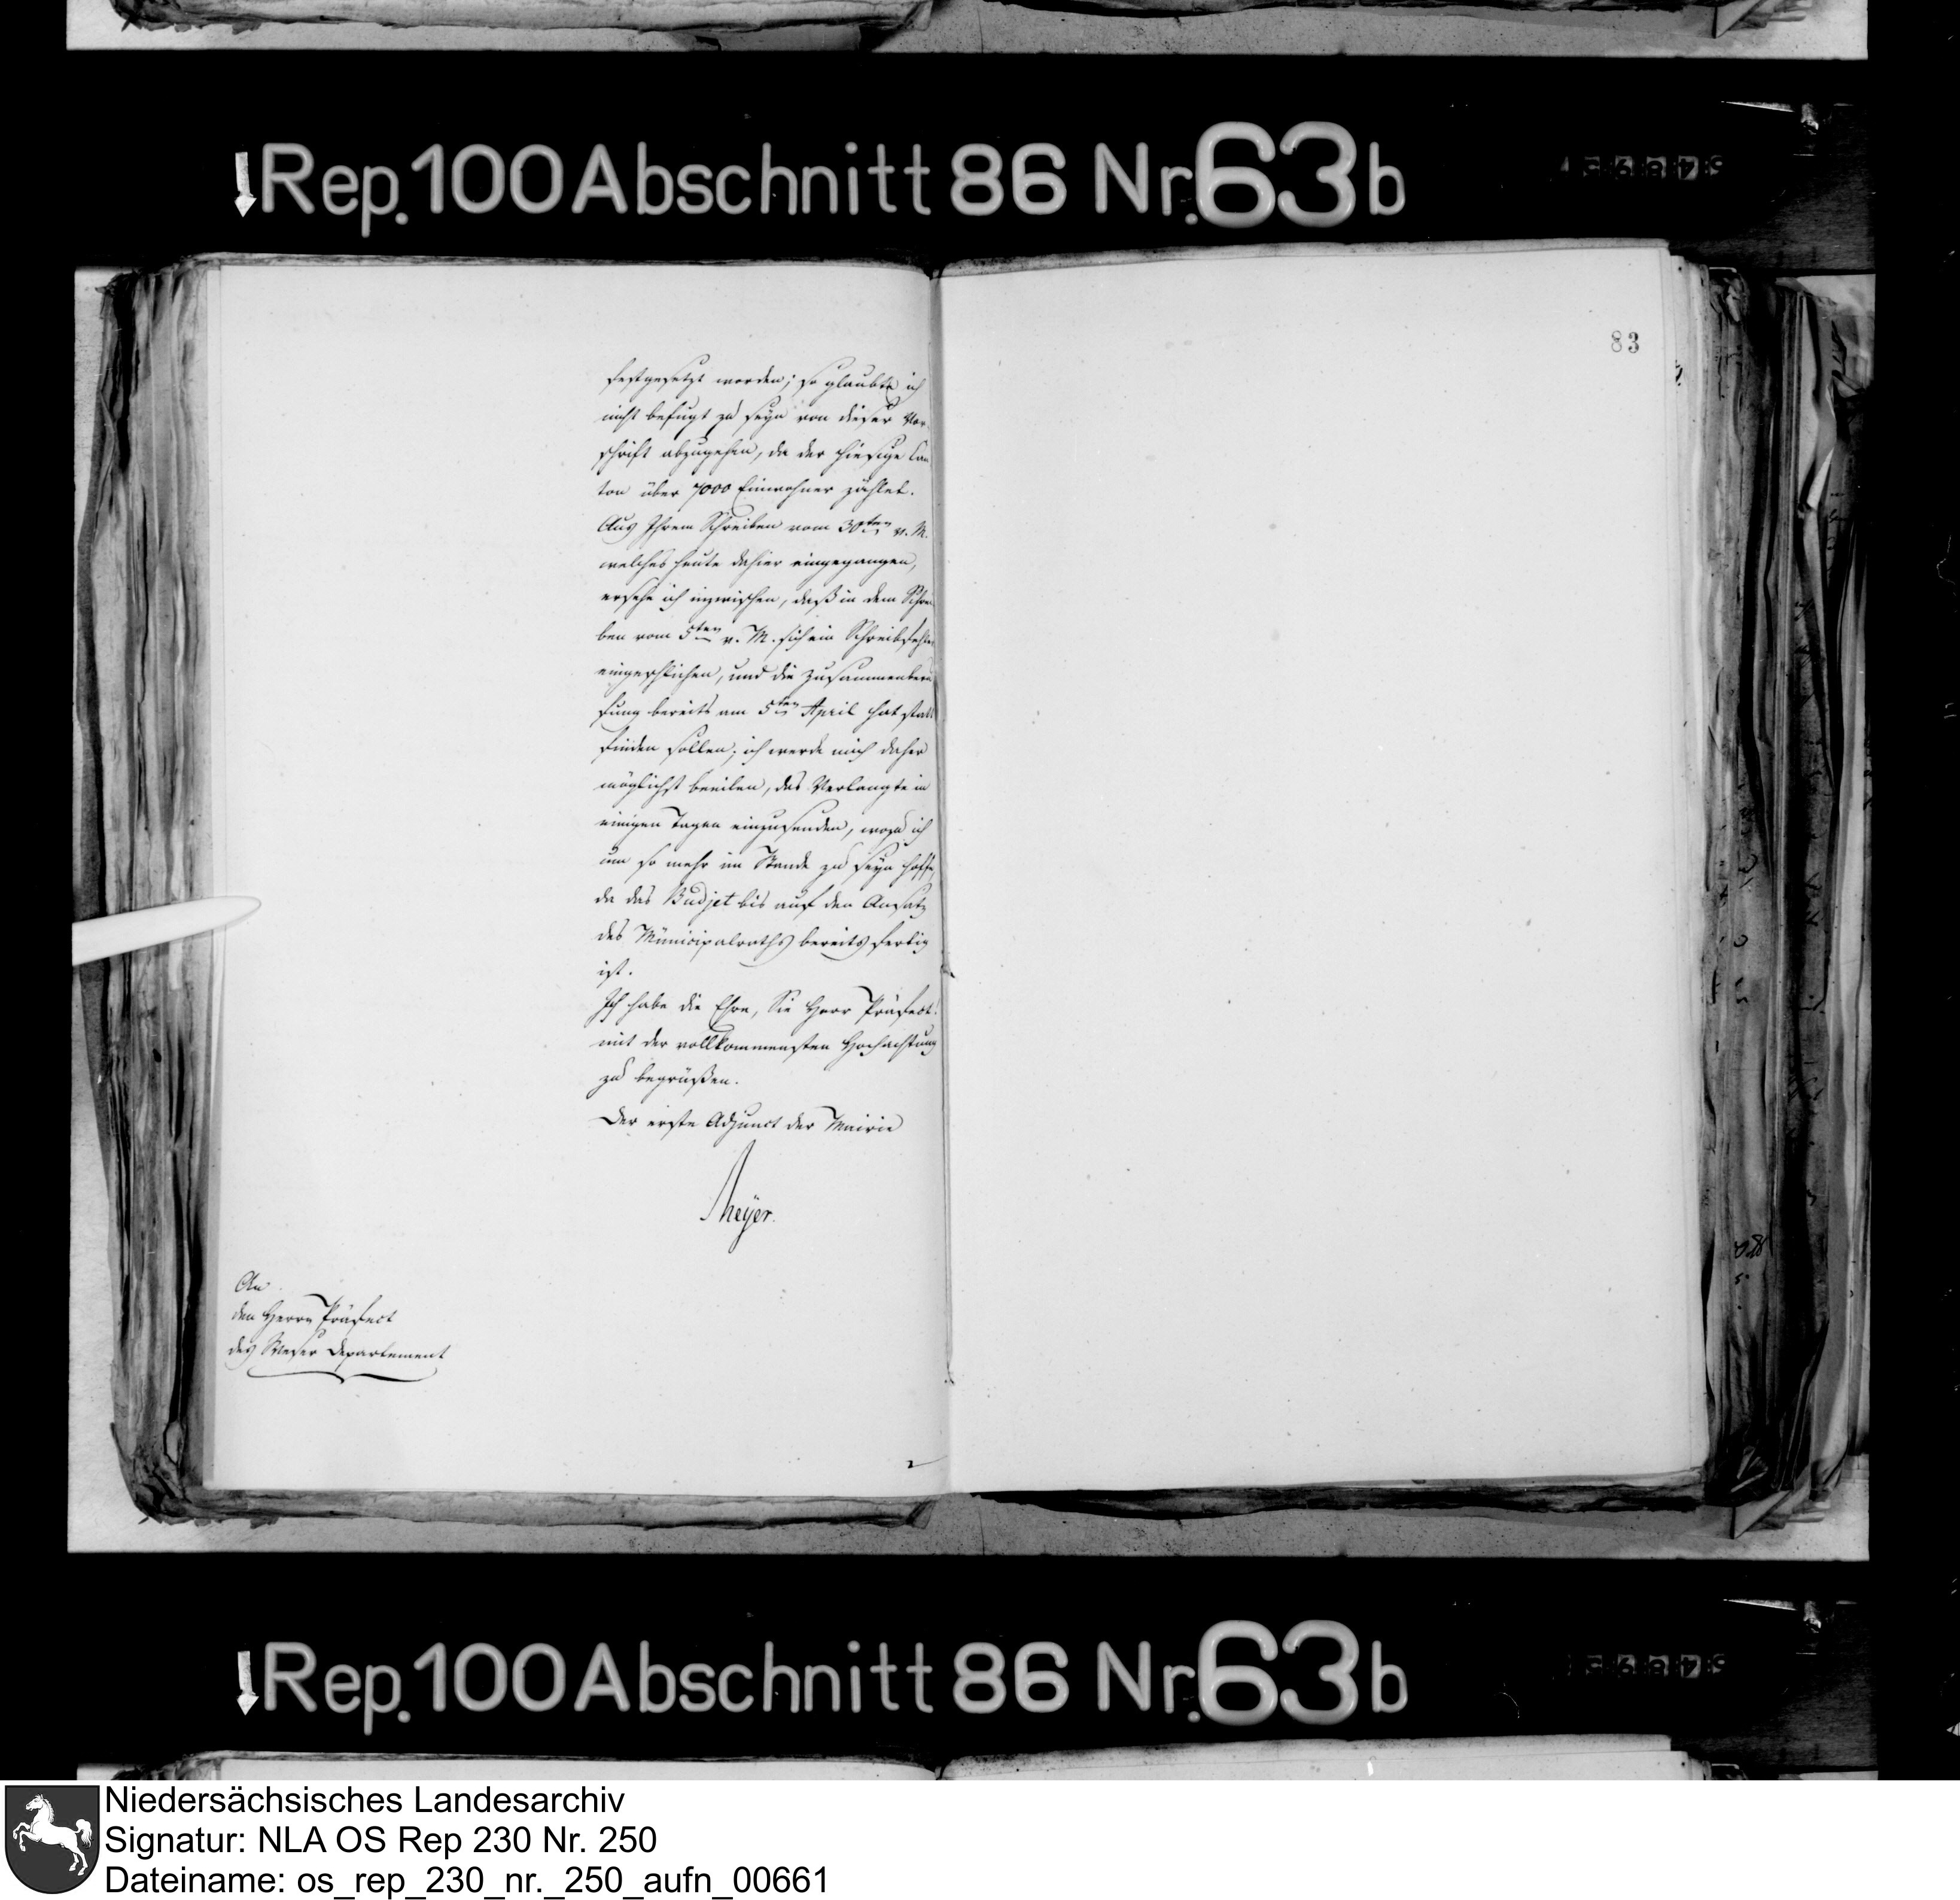 Rep. 100 Abschnitt 86 Nr. 63b
83
festgesetzt worden; so glaubte ich
nicht befugt zu seyn von dieser Vor-
schrift abzugehen, da der hiesige Can
ton über 7000 Einwohner zählet.
Aus Ihrem Schreiben vom 30ten v. M.
welches heute dahier eingegangen,
ersehe ich inzwischen, daß in dem Schrei
ben vom 5ten v. M. sich ein Schreibfehler
eingeschlichen, und die Zusammenberu
fung bereits am 5ten April hat statt
finden sollen; ich werde mich daher
möglichst beeilen, das Verlangte in
einigen Tagen einzusenden, wozu ich
um so mehr im Stande zu seyn hoffe,
da das Budjet bis auf den Ansatz
des Municipalraths bereits fertig
ist.
Ich habe die Ehre, Sie Herr Präfect!
mit der vollkommensten Hochachtung
zu begrüßen.
Der erste Adjunct der Mairie
Meyer.
An
den Herrn Präfect
des Weser Departement
Rep. 100 Abschnitt 86 Nr. 63b
Niedersächsisches Landesarchiv
Signatur: NLA OS Rep 230 Nr. 250
Dateiname: os_rep_230_nr._250_aufn_00661